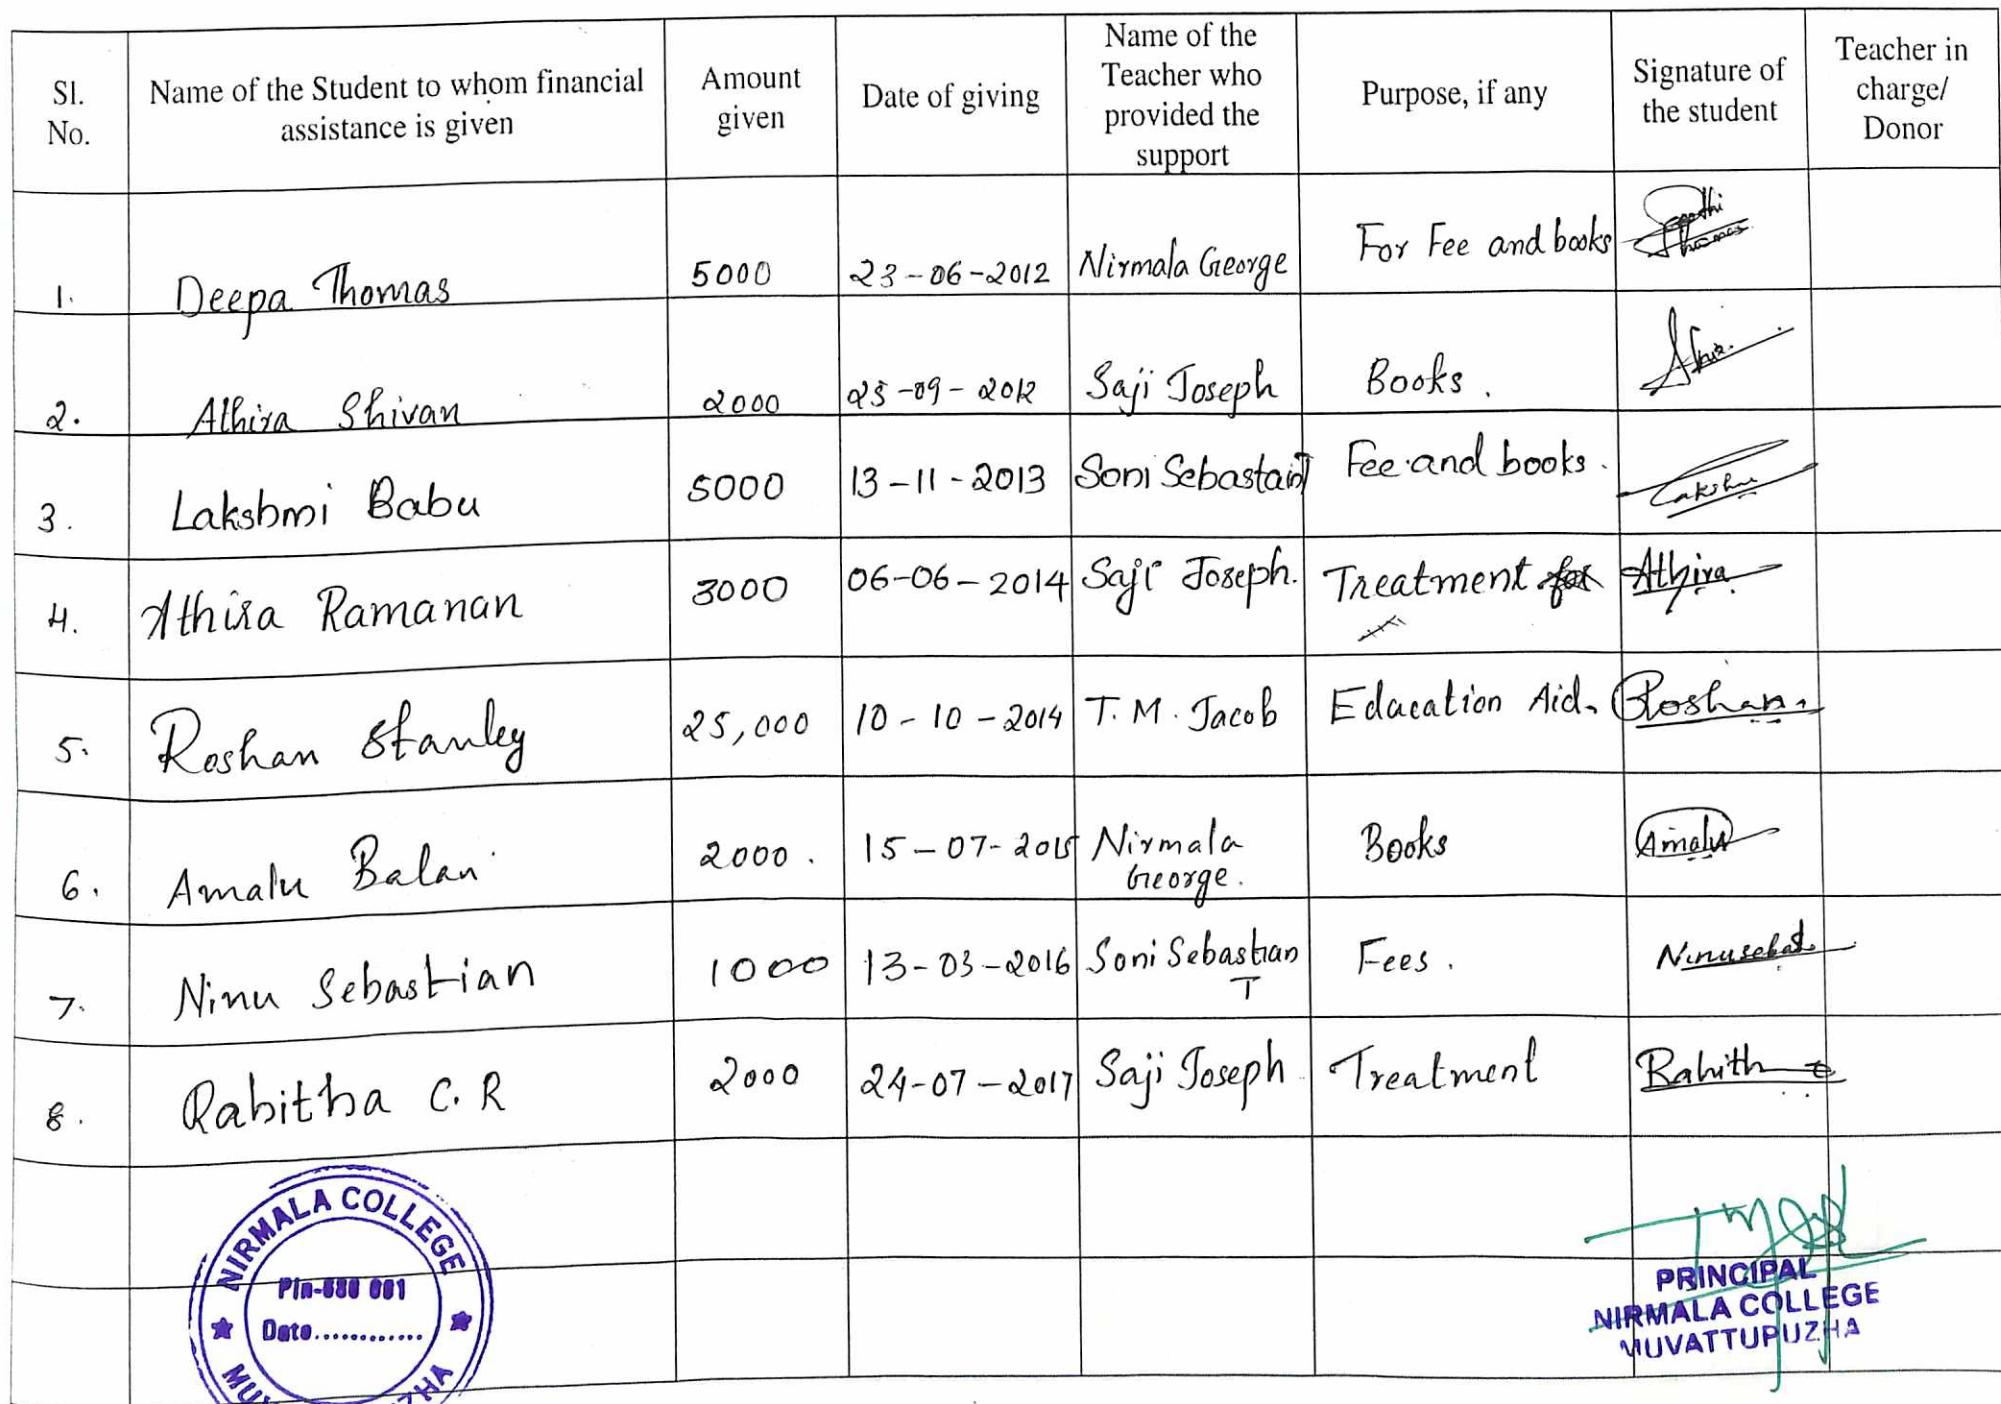 Sl. No.
Name of the Student to whom financial assistance is given
Amount given
Date of giving
Name of the Teacher who provided the support
Purpose, if any
Signature of the student
Teacher in charge/ Donor
1. Deepa Thomas 5000 23-06-2012 Nirmala George For Fee and books Thomas
2. Athira Shivan 2000 25-09-2012 Saji Joseph Books.
3. Lakshmi Babu 5000 13-11-2013 Soni Sebastain T Fee and books. Lakshmi
4. Athira Ramanan 3000 06-06-2014 Saji Joseph. Treatment for Athira
5. Roshan Stanley 25,000 10-10-2014 T.M. Jacob Education Aid. Roshan.
6. Amalu Balan 2000. 15-07-2015 Nirmala George. Books Amalu
7. Ninu Sebastian 1000 13-03-2016 Soni Sebastian T Fees.
8. Rabitha C.R 2000 24-07-2017 Saji Joseph Treatment
NIRMALA COLLEGE
Date.............
PRINCIPAL
NIRMALA COLLEGE
MUVATTUPUZHA